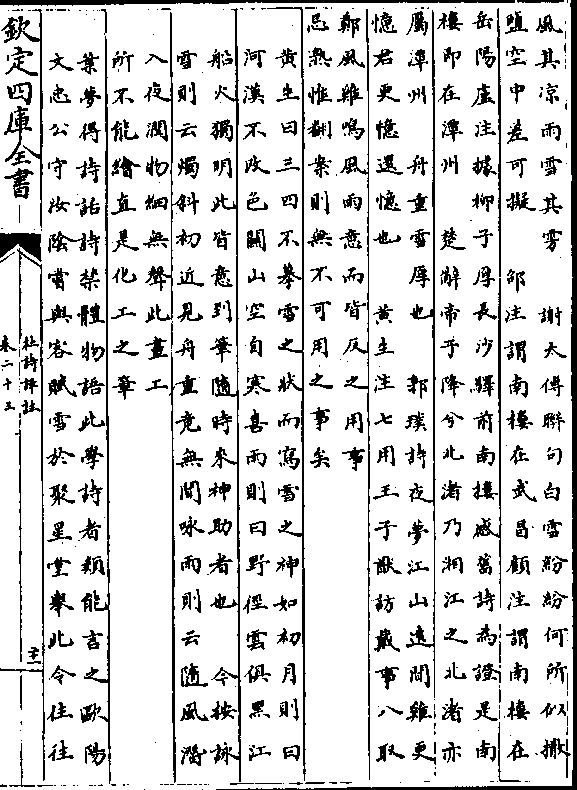 風其凉雨雪其雱　謝太傅聯句白雪紛紛何所似撒
鹽空中差可擬　邵注謂南樓在武昌顧注謂南樓在
岳陽盧注據栁子厚長沙驛前南樓感舊詩為證是南
樓即在潭州　楚辭帝子降兮北渚乃湘江之北渚亦
屬潭州　舟重雪厚也　郭璞詩夜夢江山遠間雞更
憶君更憶還憶也　黄生注七用王子猷訪戴事八取
鄭風雞鳴風雨意而皆反之用事
忌熟惟翻案則無不可用之事矣
黄生曰三四不摹雪之狀而寫雪之神如初月則曰
河漢不改色關山空自寒喜雨則曰野徑雲俱黑江
船火獨明此皆意到筆隨時來神助者也　今按詠
雪則云燭斜初近見舟重竟無聞咏雨則云隨風潛
入夜潤物細無聲此畫工
所不能繪直是化工之筆
葉夢得詩話詩禁體物語此學詩者類能言之歐陽
文忠公守汝陰嘗與客賦雪於聚星堂舉此令往往
欽定四庫全書
杜詩詳註
卷二十三